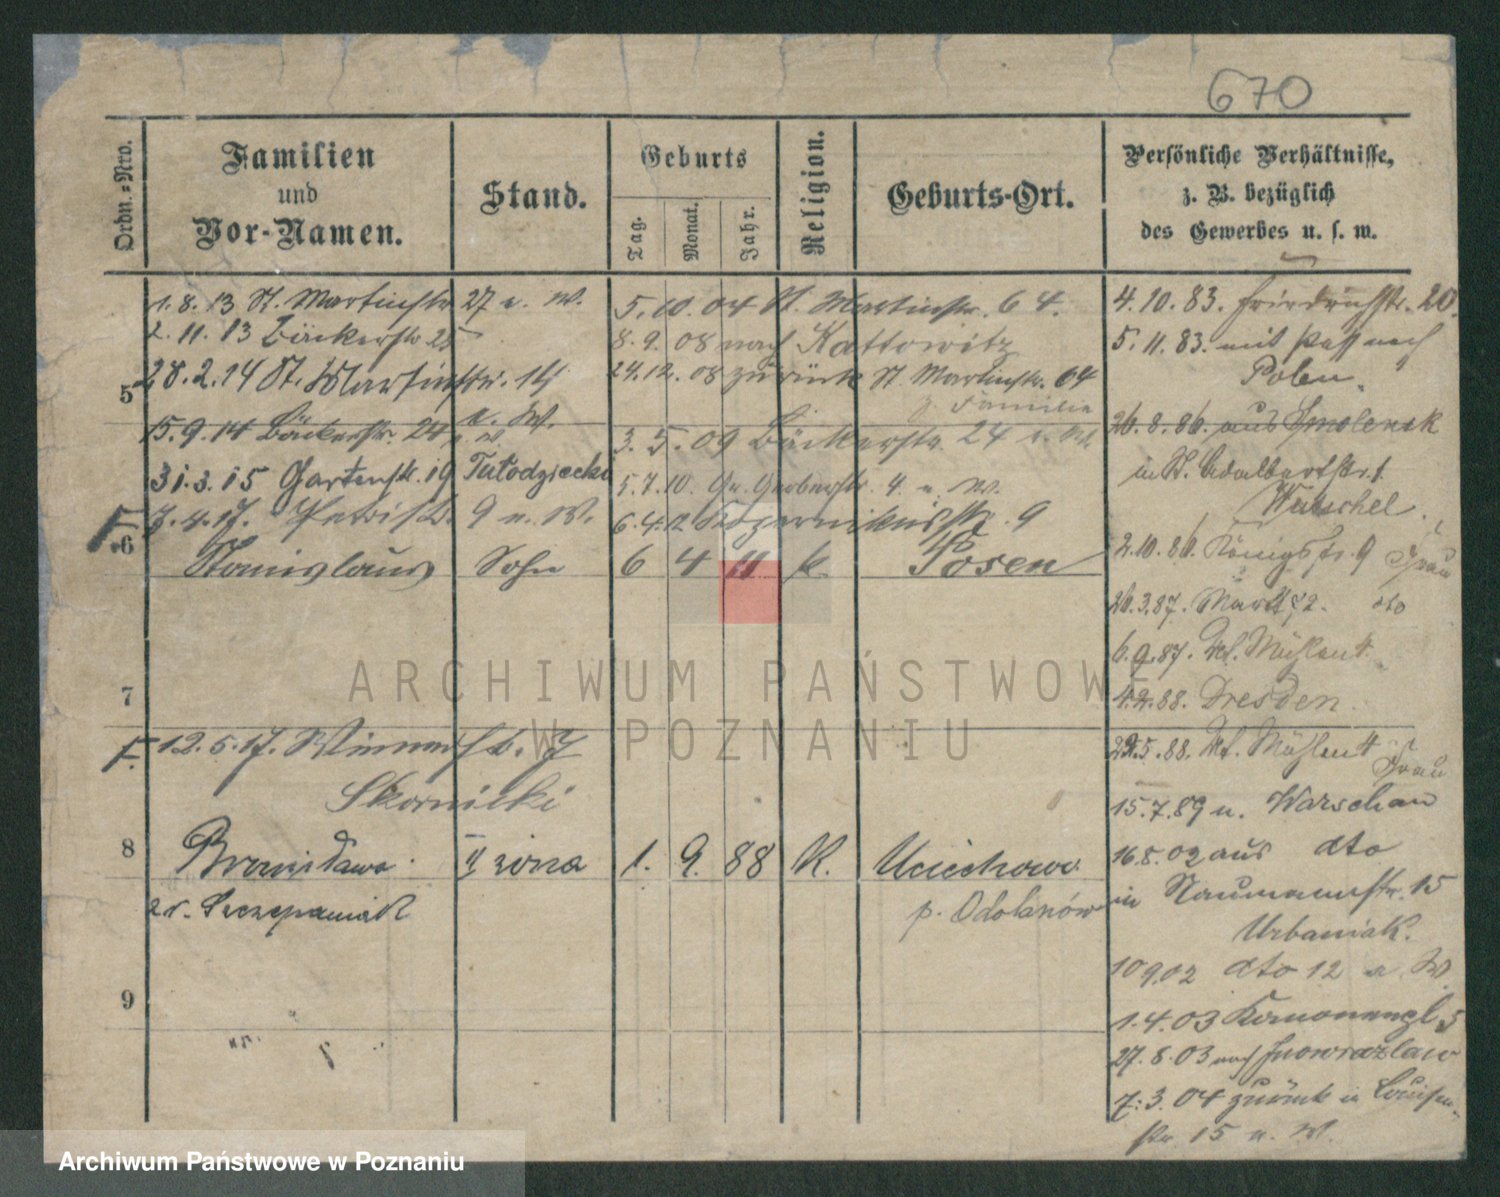 670
Ordn.-Nro.
Familien
und
Vor-Namen.
Stand.
Geburts
Tag.
Monat.
Jahr.
Religion.
Geburts-Ort.
Persönliche Verhältnisse,
z. B. bezüglich
des Gewerbes u. s. w.
1.8.13 St. Martinstr 27 u. W.
2.11.13 Bäckerstr 25
28.2.14 St. Martinstr. 14
u. W.
5
15.9.14 Bäckerstr. 24
31.3.15 Gartenstr. 19
7.4.17. 9 u. W.
5.10.04 St. Martinstr. 64.
8.9.08 nach Kattowitz
24.12.08 zurück St. Martinstr. 64
z. Familie
3.5.09 Bäckerstr. 24 u. W.
5.7.10. Gr. Gerberstr. 4. u. W.
6.4.12 9
6 Stanislaus Sohn 6 4 11 k. Posen
7
12.5.17. 7
Skornicki
8 Bronisława II żona 1. 9. 88 K. Uciechowo
zr. Szczepaniak p. Odolanów
9
4.10.83. Friedrichstr. 20.
5.11.83. mit Pass nach
Polen.
26.8.86. aus Smolensk
in St. Adalbertstr. 1.
2.10.86. Königstr. 9 Frau
26.3.87. Markt 72. dto
6.9.87.
88. Dresden.
5.88. Frau
15.7.89 n. Warschau
16.5.02 aus dto
in Naumannstr. 15
Urbaniak.
10 9.02 dto 12 u. W
1.4.03 5
27.8.03 nach Inowrazlaw
7.3.04 zurück in Louisen-
str. 15 u. W.
ARCHIWUM PAŃSTWOWE
W POZNANIU
Archiwum Państwowe w Poznaniu